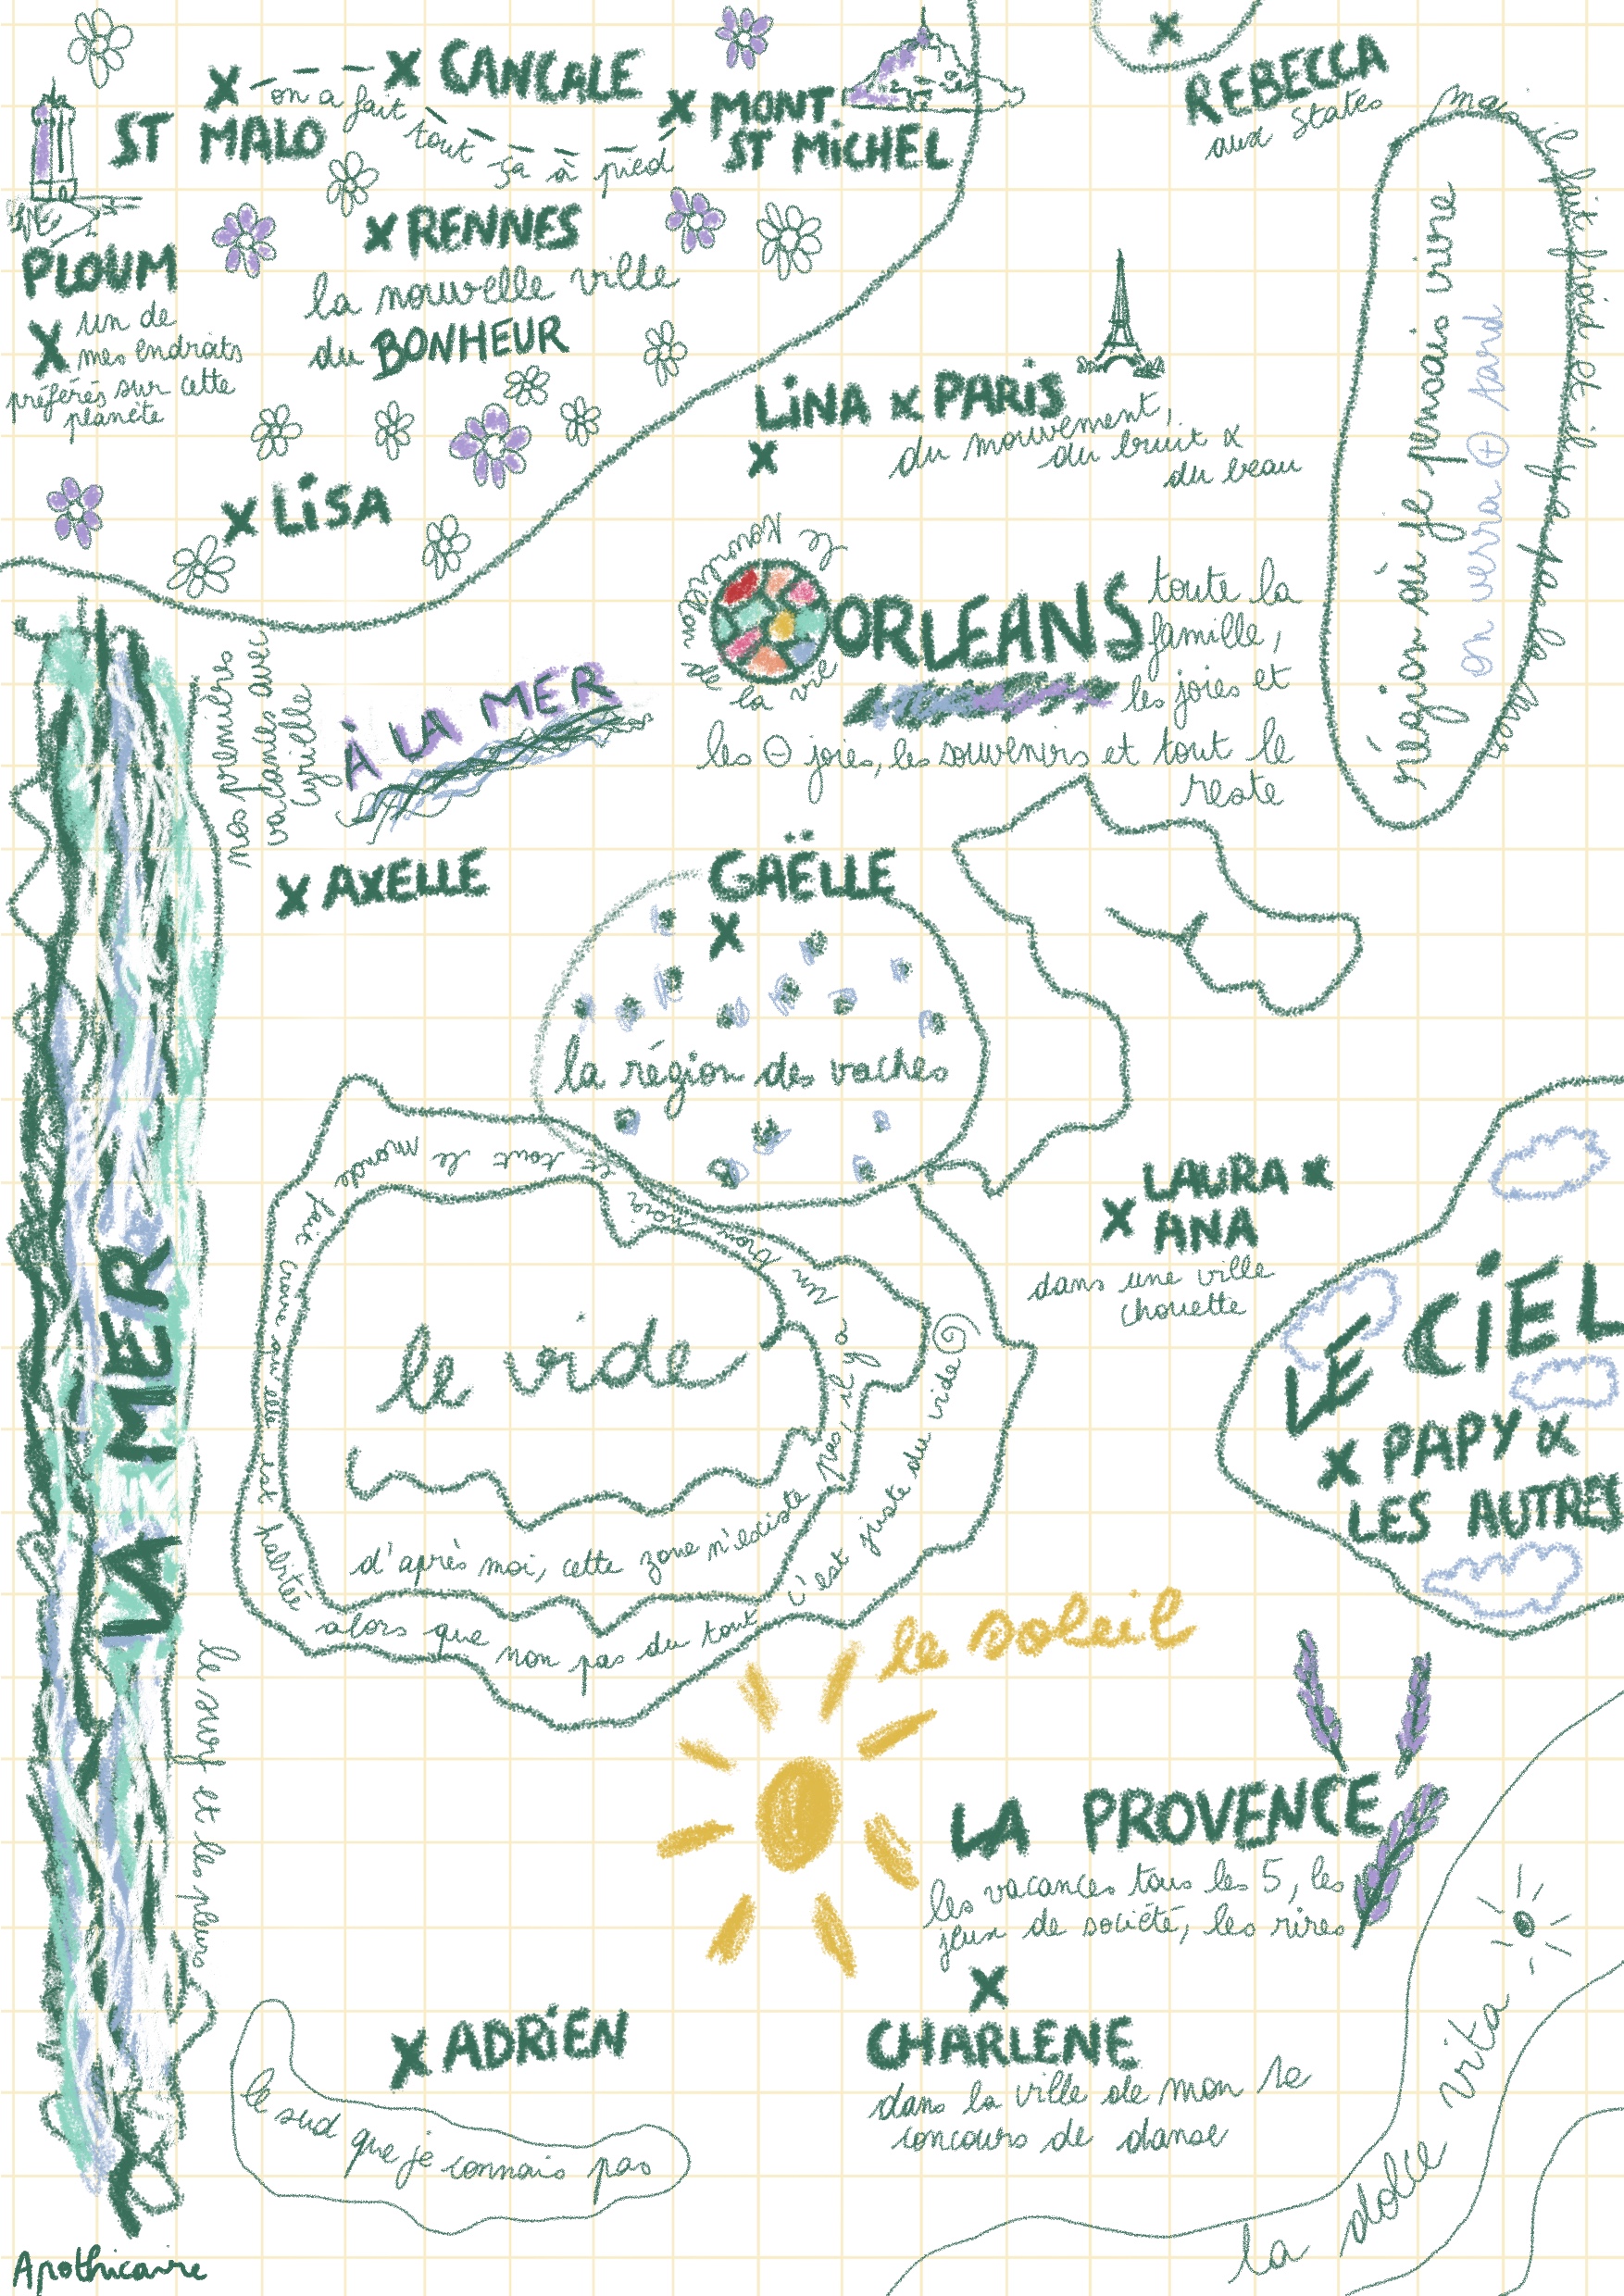 CANCALE
ST MALO
on a fait tout ça à pied
MONT
ST MiCHEL
REBECCA
aux States
PLOUM
un de
mes endroits
préférés sur cette
planète
RENNES
la nouvelle ville
du BONHEUR
LiNA
PARiS
du mouvement,
du bruit &
du beau
LiSA
région où je pensais vivre
on verra ⊕ tard
mais il fait froid et il y a pas la mer
Le Kouign de la vie
ORLEANS
toute la
famille,
les joies et
les ⊖ joies, les souvenirs et tout le
reste
nos premières
vacances avec
Cyrielle
À LA MER
AXELLE
GAËLLE
la région des vaches
LA MER
le surf et les pleurs
LAURA &
ANA
dans une ville
chouette
LE CiEL
PAPY &
LES AUTRES
le vide
d'après moi, cette zone n'existe pas, il y a un
fait croire qu'elle est habité
alors que non pas du tout c'est juste du vide
le soleil
LA PROVENCE
les vacances tous les 5, les
jeux de société, les rires
ADRiEN
le sud que je connais pas
CHARLENE
dans la ville de mon 1e
concours de danse
la dolce vita
Apothicaire